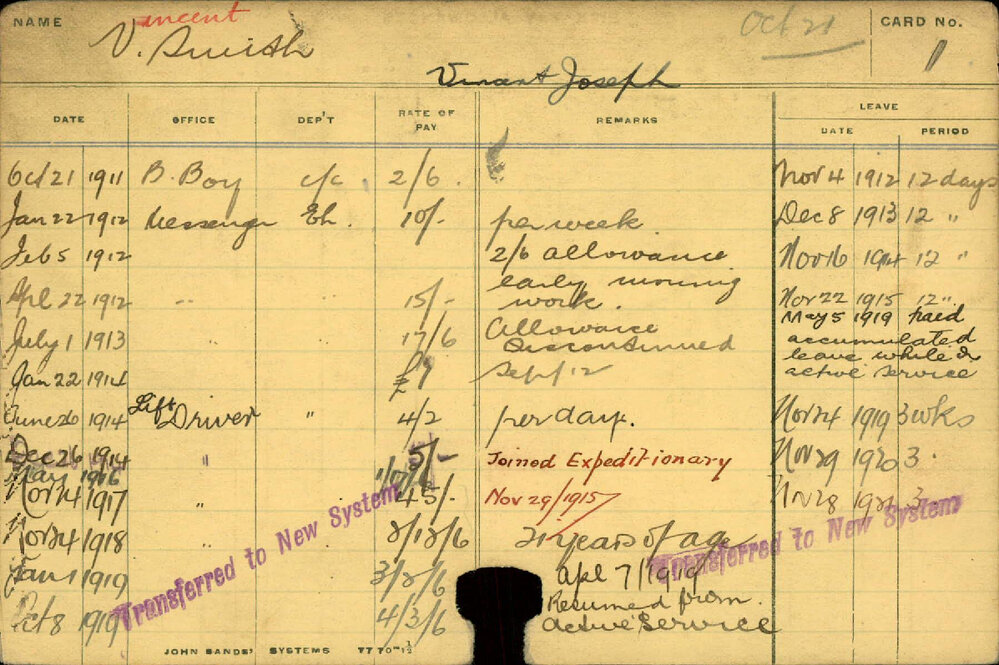 NAME
Vincent
V. Smith
Oct 21
CARD No.
1
Vincent Joseph
DATE OFFICE DEP'T RATE OF PAY REMARKS LEAVE
DATE PERIOD
Oct 21 1911 B. Boy c/c 2/6. Nov 4 1912 12 days
Jan 22 1912 Messenger Eh. 10/- per week Dec 8 1913 12 "
Feb 5 1912 2/6 allowance Nov 16 1914 12 "
early morning
Apl 22 1912 " 15/- work. Nov 22 1915 12 "
May 5 1919 paid
July 1 1913 17/6 Allowance accumulated
Discontinued leave while on
Jan 22 1914 £1 Sept 12 active service
June 26 1914 Lift Driver " 4/2 per day. Nov 24 1919 3 wks
Dec 26 1914 " 5/- Joined Expeditionary Nov 29 1920 3.
May 1916
Nov 14 1917 " 45/- Nov 29/1915 Nov 28 1921 3.
Nov 24 1918 " 2/18/6 21 years of age
Jan 1 1919 3/2/6 Apl 7/1919
Oct 8 1919 4/3/6 Resumed from
active service
Transferred to New System
Transferred to New System
JOHN SANDS' SYSTEMS